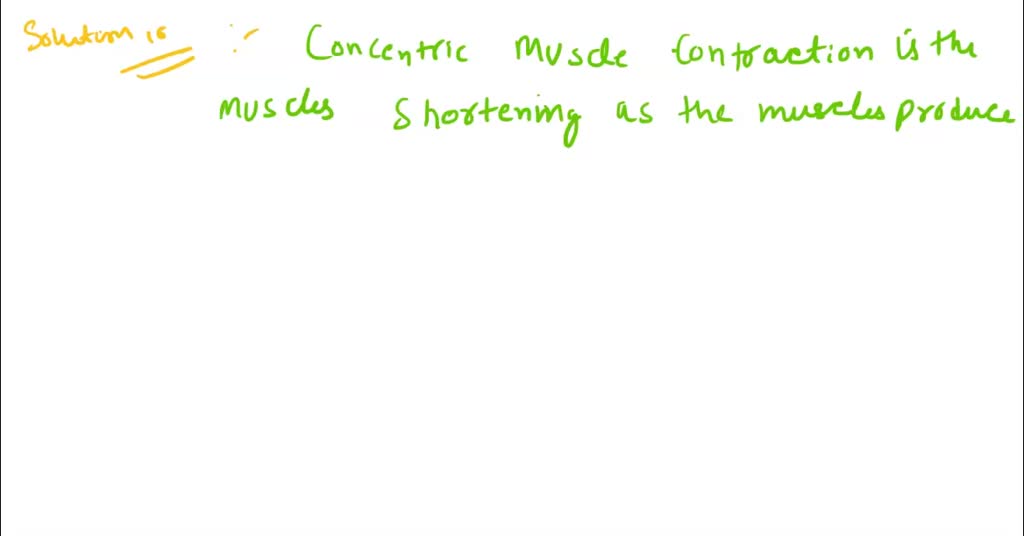 Solution is :- Concentric Muscle Contraction is the
muscles Shortening as the muscles produce